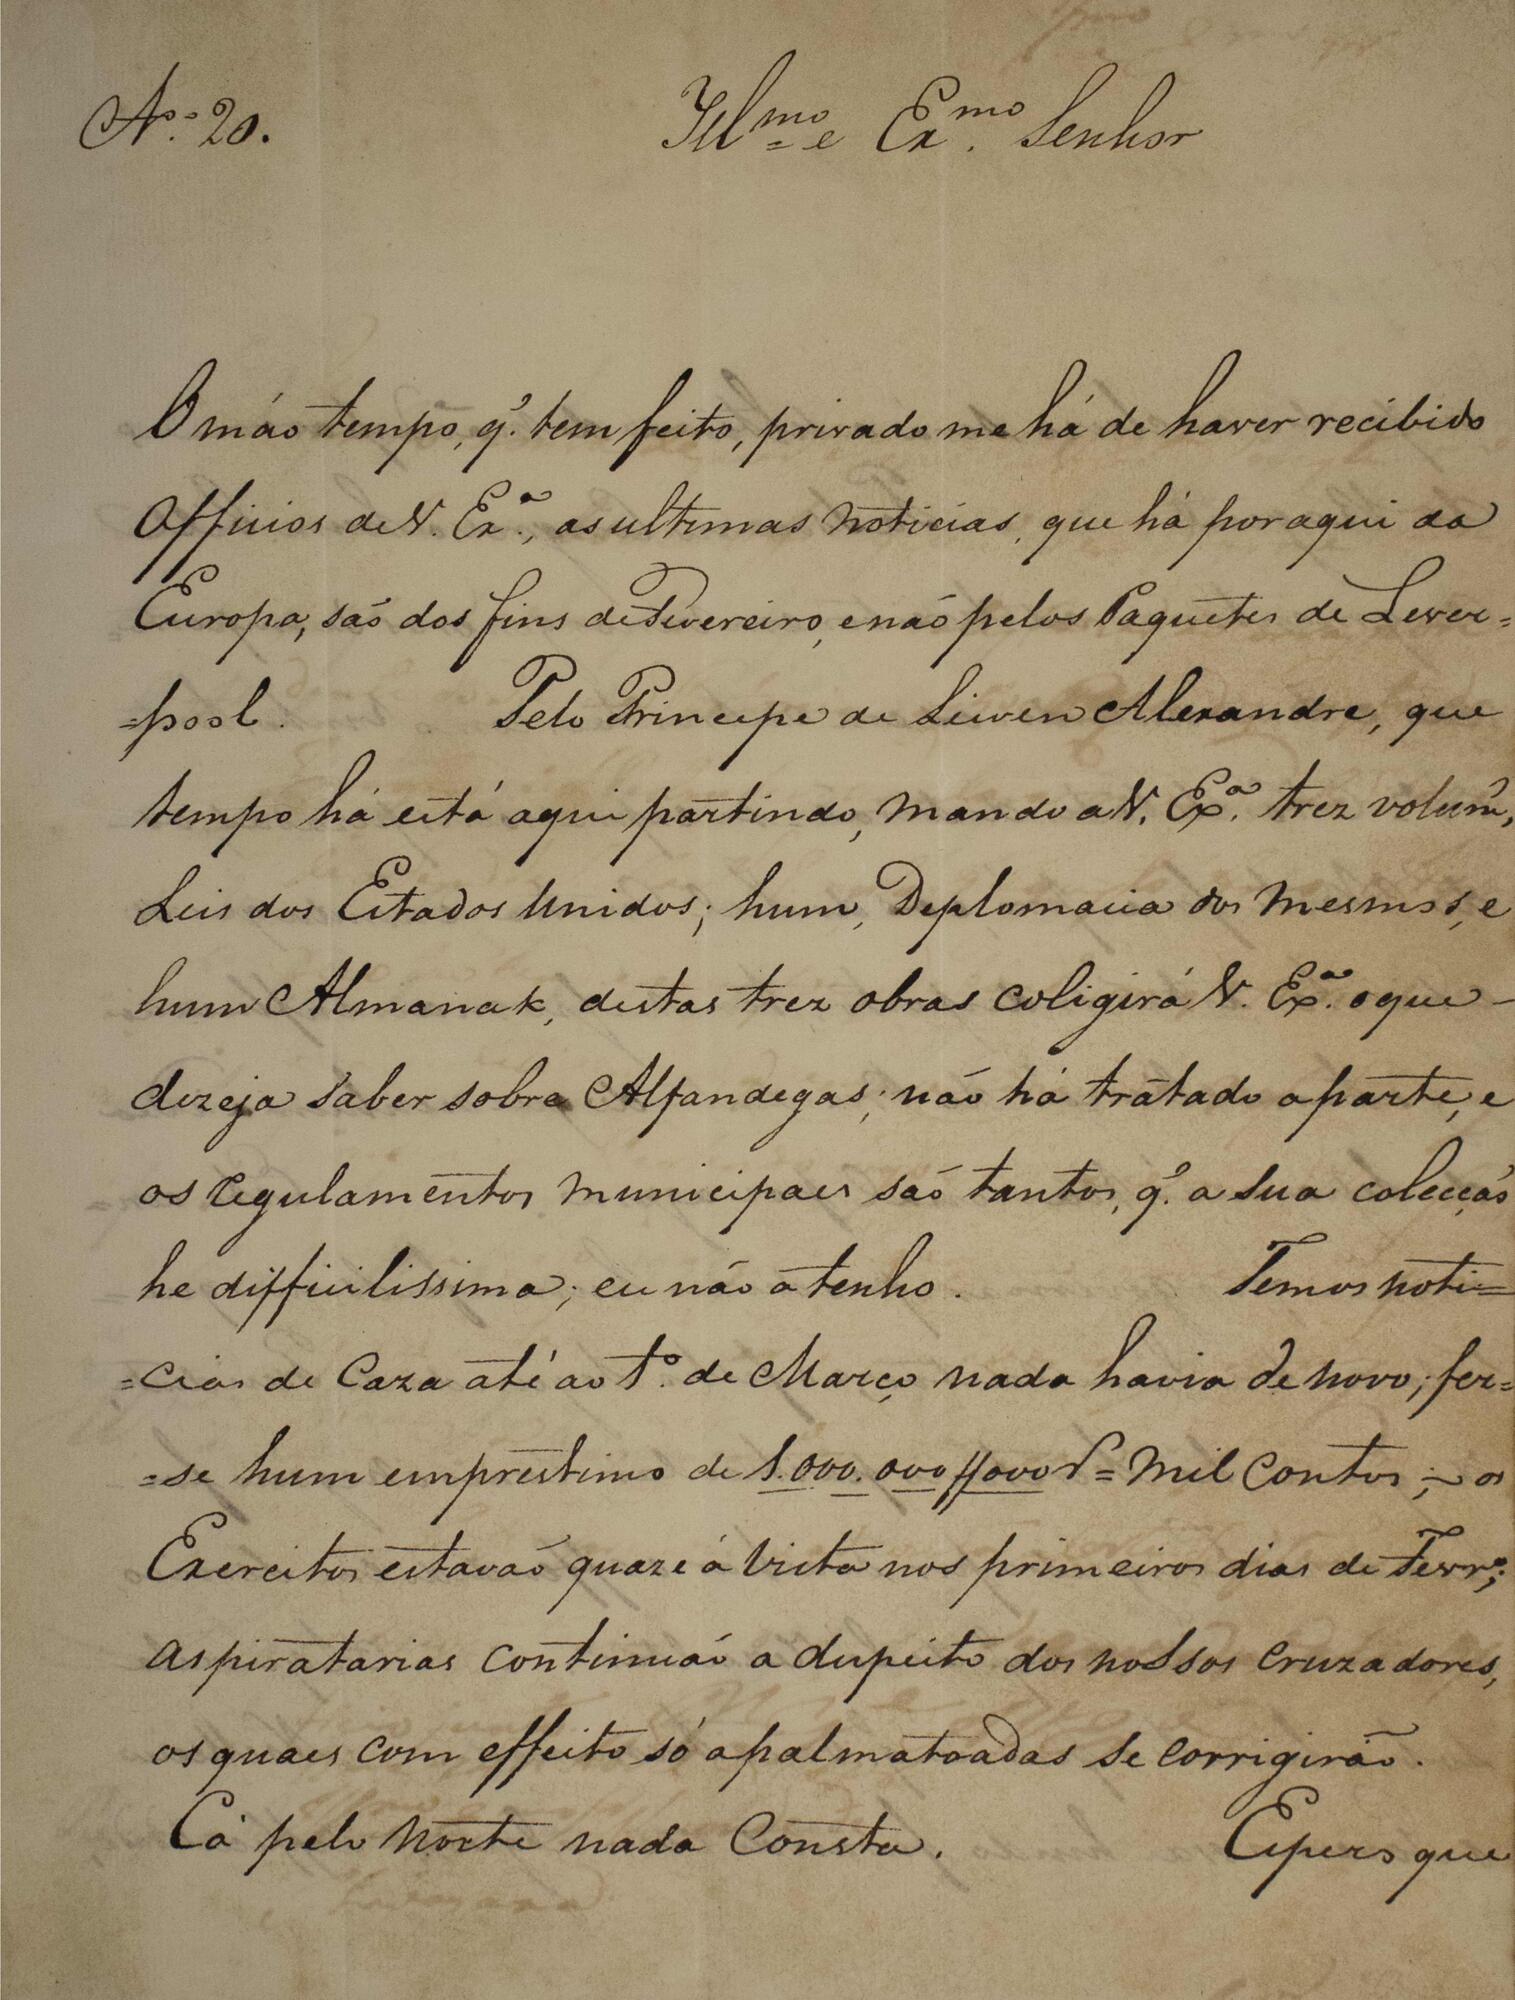 N.º 20.
Illmo e Exmo Senhor
O máo tempo, q.' tem feito, privado me há de haver recibido
Officios de V. Exª., as ultimas noticias, que há por aqui da
Europa, são dos fins de Fevereiro, e não pelos Paquetes de Lever=
=pool. Pelo Principe de Liewen Alexandre, que
tempo há está aqui partindo, mando a V. Exª. trez volum.,
Leis dos Estados Unidos; hum, Deplomacia dos mesmos, e
hum Almanak, destas trez obras coligirá V. Exª. o que -
dezeja saber sobre Alfandegas; não há tratado aparte, e
os regulamentos municipaes são tantos, q.' a sua colecção
he difficilissima; eu não a tenho. Temos noti=
=cias de Caza até ao 1.º de Março nada havia de novo; fez=
=se hum emprestimo de 1.000.000//000 r = Mil Contos; os
Exercitos estavão quaze á vista nos primeiros dias de Fevr.º;
as piratarias continuão a dispeito dos nossos Cruzadores,
os quaes com effeito só a palmatoadas se corrigirão.
Cá pelo Norte nada Consta. Espero que